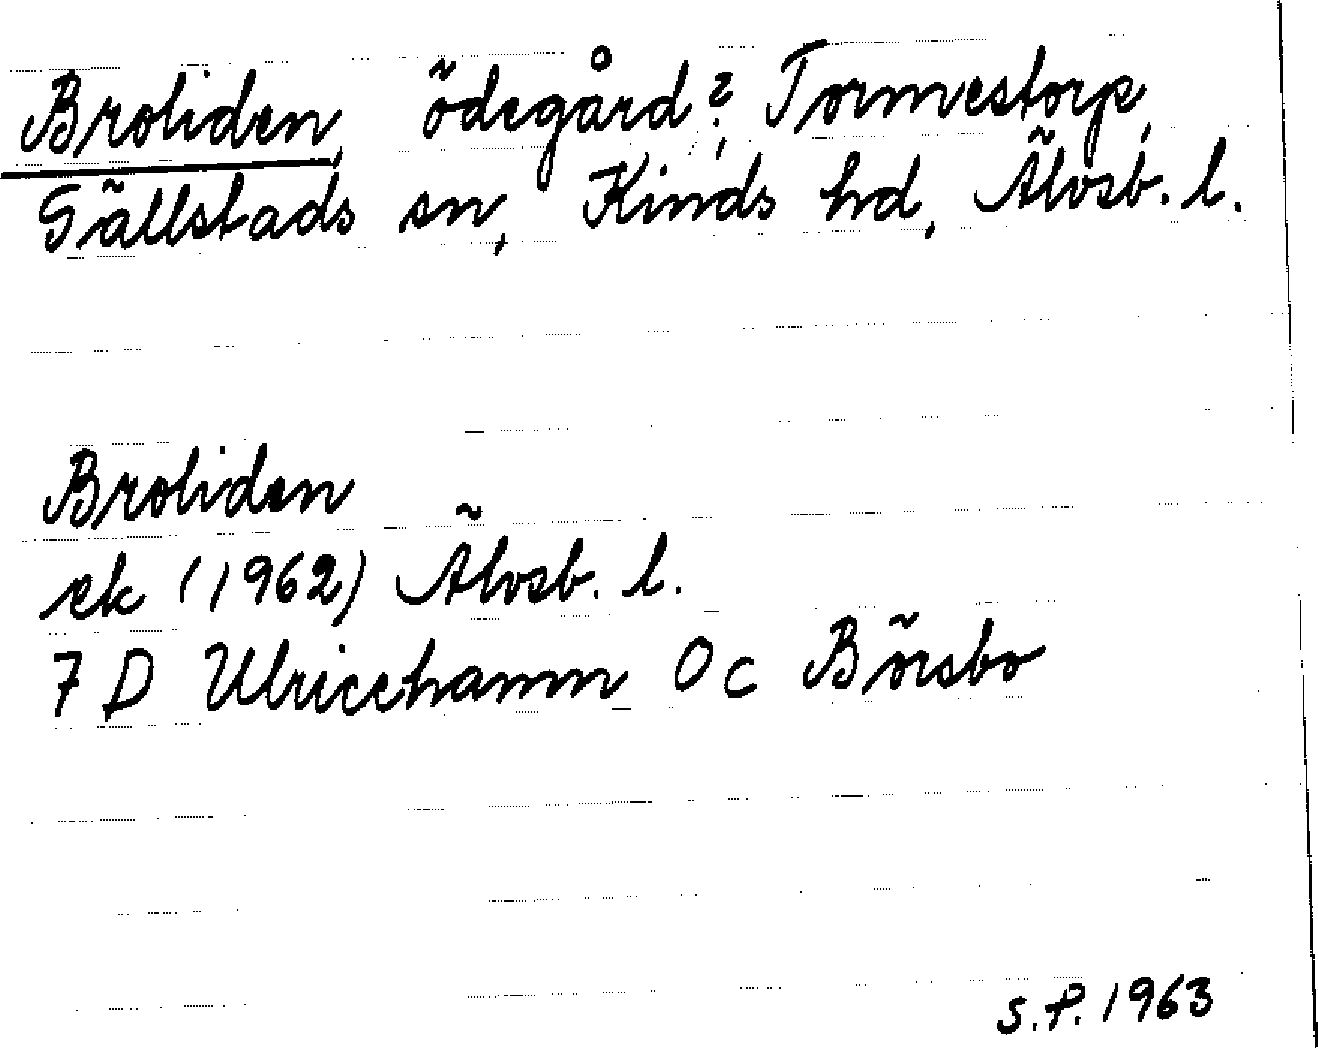 Broliden, ödegård?, Tormestorp,
Gällstads sn, Kinds hd, Älvsb. l.
Broliden
ek (1962) Älvsb. l.
7 D Ulricehamn 0 c Börsbo
S.P. 1963